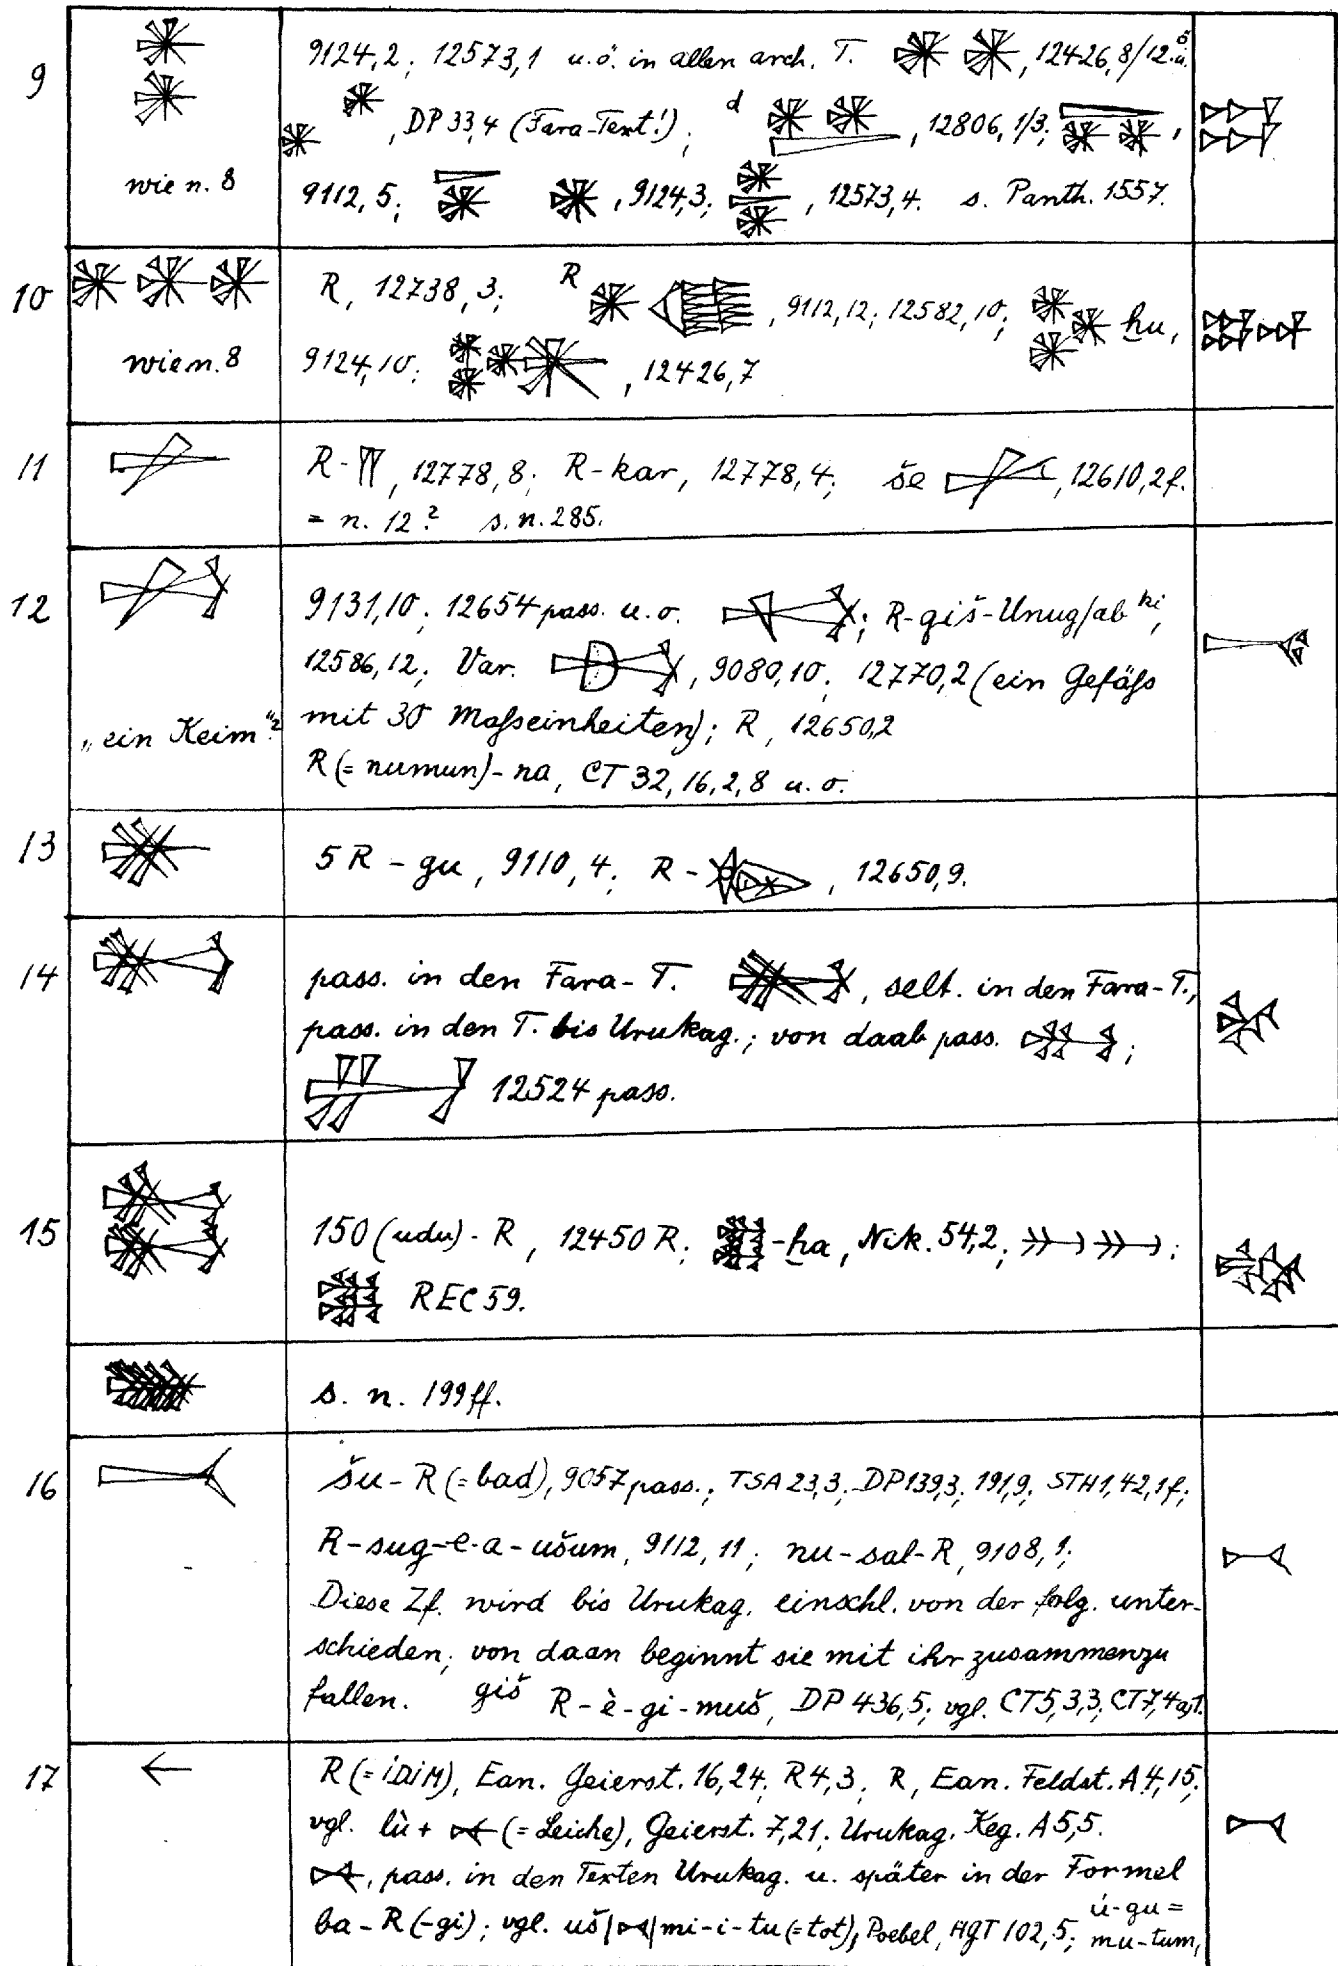 9
9124,2; 12573,1 u.ö. in allen arch. T. , 12426,8/12.u.ö
, DP 33,4 (Fara-Text!); d , 12806,1/3; ,
wie n. 8
9112,5; , 9124,3; , 12573,4. s. Panth. 1557.
10
R, 12738,3; R , 9112,12; 12582,10; ḫu,
wie n. 8
9124,10; , 12426,7
11
R- , 12778,8; R-kar, 12778,4; še , 12610,2f.
= n. 12? s. n. 285.
12
9131,10; 12654 pass. u. o. ; R-giš-Unug/ab ki,
12586,12; Var. , 9080,10; 12770,2 (ein Gefäß
mit 30 Maßeinheiten); R, 12650,2
„ein Keim“?
R (= numun)-na, CT 32,16,2,8 u. o.
13
5 R - gu, 9110,4; R - , 12650,9.
14
pass. in den Fara-T. , selt. in den Fara-T.,
pass. in den T. bis Urukag.; von daab pass. ;
12524 pass.
15
150 (udu) - R, 12450 R; -ḫa, Nik. 54,2; ;
REC 59.
s. n. 199ff.
16
šu - R (= bad), 9057 pass.; TSA 23,3; DP 139,3; 191,9; STH 1,42,1f;
R-sug-e-a-ušum, 9112,11; nu-sal-R, 9108,1;
Diese Zf. wird bis Urukag. einschl. von der folg. unter-
schieden; von daan beginnt sie mit ihr zusammenzu
fallen. giš R-è-gi-muš, DP 436,5; vgl. CT 5,3,3; CT 7,4a,1.
17
R (= IDIM), Ean. Geierst. 16,24; R 4,3; R, Ean. Feldst. A 4,15;
vgl. lù + (= Leiche), Geierst. 7,21; Urukag. Keg. A 5,5.
, pass. in den Texten Urukag. u. später in der Formel
ba-R(-gi); vgl. uš | | mi-i-tu (= tot), Poebel, HGT 102,5; ú-gu =
mu-tum,